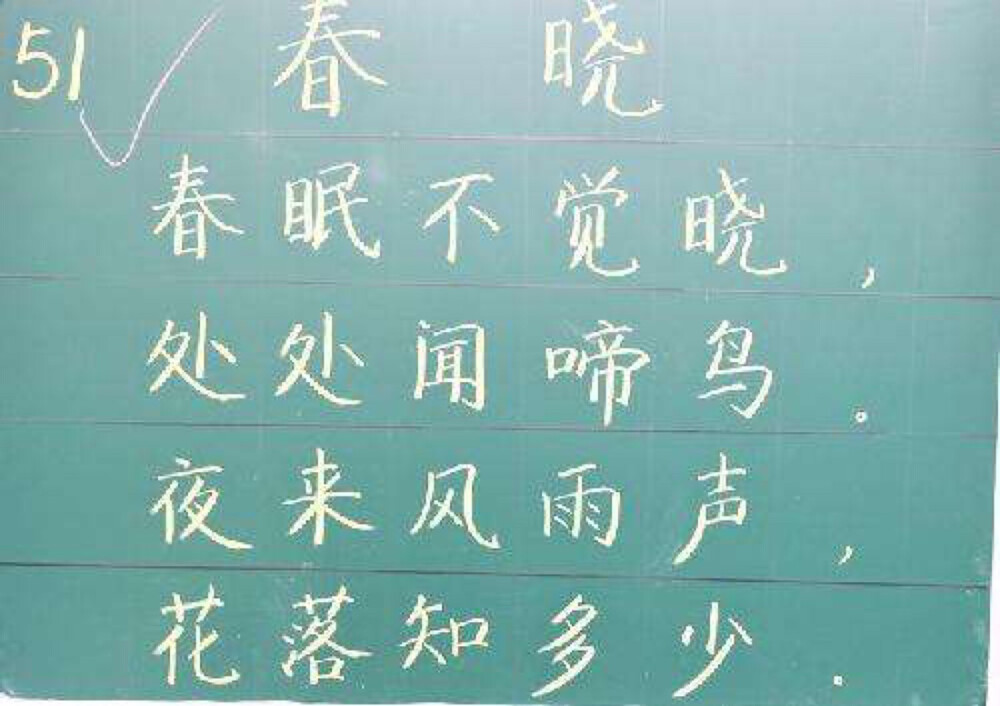 51 春晓
春眠不觉晓，
处处闻啼鸟。
夜来风雨声，
花落知多少.